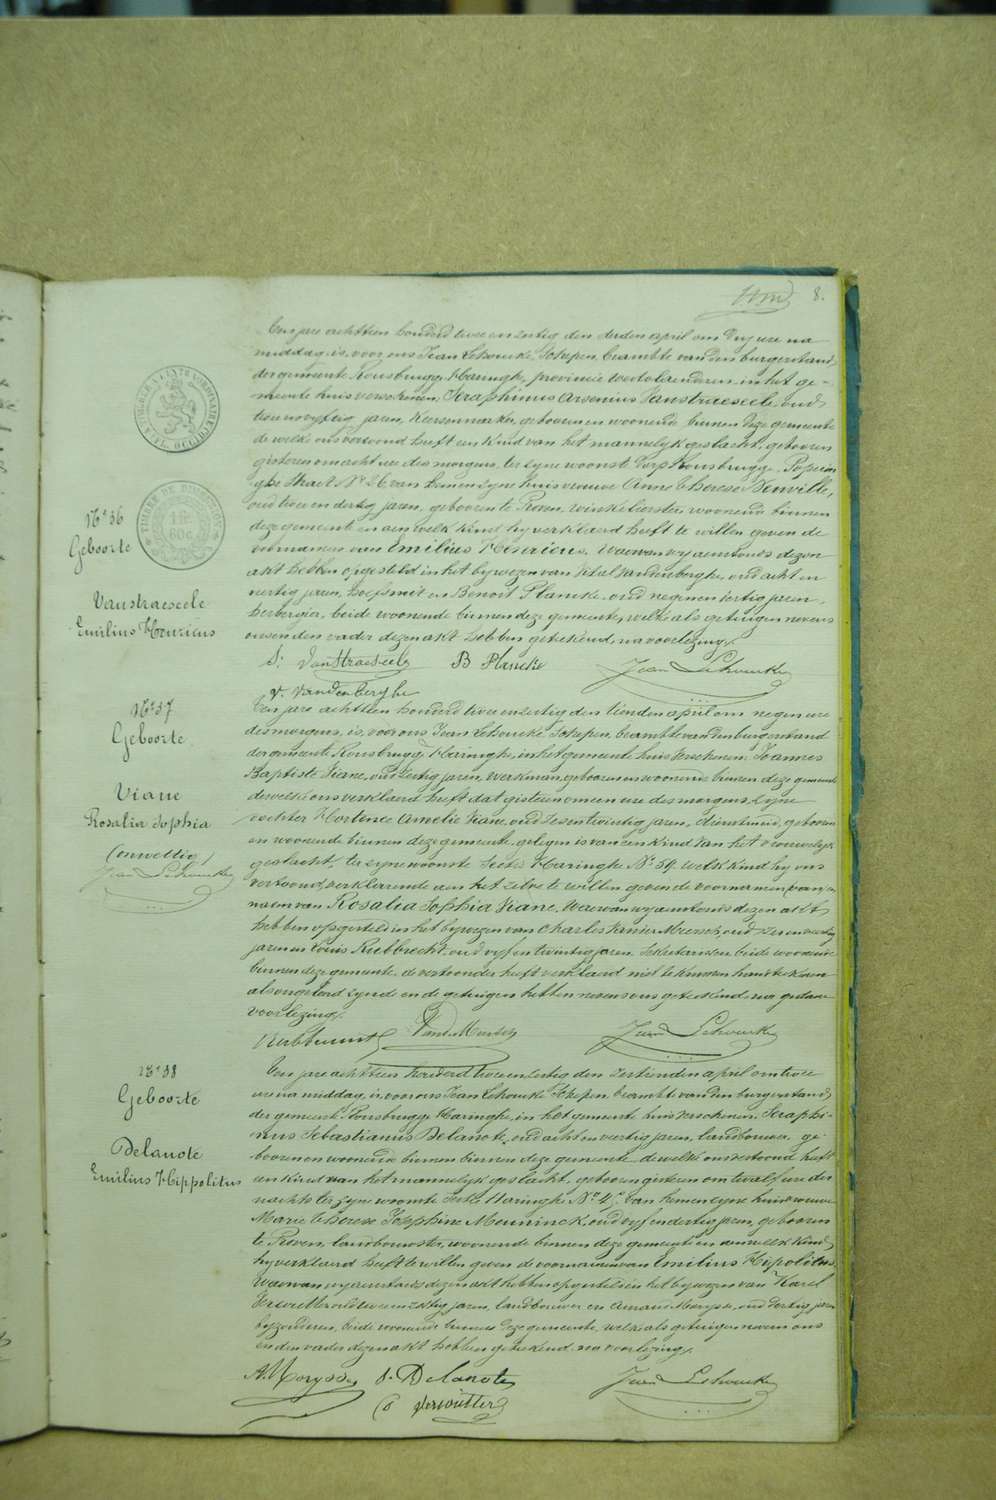 8.
Ten jare achttien honderd twee en zestig den derden april om dry ure na
middag, is, voor ons Jean Lehoucke, Schepen, beambte van den burgerstand,
der gemeente Rousbrugge Haringhe, provincie Westvlaenderen, in het ge-
meente huis verschenen, Seraphinus Arsenius Vanstraeseele, oud
twee en vyftig jaren, Keersenmaeker, geboren en woonende binnen deze gemeente
de welke ons vertoond heeft een kind van het mannelyk geslacht, geboren
gisteren om acht ure des morgens, ter zyne woonste dorp Rousbrugge, Poperin
ghe straet N° 26, van hem en zyne huisvrouwe Anne Therese Denville,
oud twee en dertig jaren, geboren te Proven, winkelierster, woonende binnen
deze gemeente en aen welk kind hy verklaerd heeft te willen geven de
voornamen van Emilius Henricus. Waervan wy aenstonds dezen
akt hebben opgesteld in het bywezen van Vital Vandenberghe, oud acht en
veertig jaren, hoefsmit en Benoit Plancke, oud negen en veertig jaren,
herbergier, beide woonende binnen deze gemeente, welke als getuigen nevens
ons en den vader dezen akt hebben geteekend, na voorlezing.
N° 36
Geboorte
Vanstraeseele
Emilius Henricus
S: VanStraeseele B Plancke Jean Lehoucke
v. vandenberghe
Ten jare achttien honderd twee en zestig den tienden april om negen ure
des morgens, is, voor ons Jean Lehoucke Schepen, beambte van den burgerstand
der gemeente Rousbrugge Haringhe, in het gemeente huis verschenen Joannes
Baptiste Viane, oud zestig jaren, werkman, geboren en woonende binnen deze gemeente
dewelke ons verklaerd heeft dat gisteren om een ure des morgens, zyne
dochter Hortence Amelie Viane, oud zes en twintig jaren, dienstmeid, geboren
en woonende binnen deze gemeente, gelegen is van een kind van het vrouwelyk
geslacht, ter zyne woonste Sectie Haringhe N° 54, welk kind hy ons
vertoond, verklarende aen het zelve te willen geven de voornamen van en
naem van Rosalia Sophia Viane. Waervan wy aenstonds dezen akt
hebben opgesteld in het bywezen van Charles
jaren en Louis Rubbrecht, oud vyf en twintig jaren, Sekretarissen beide woonende
binnen deze gemeente, de vertoonder heeft verklaerd niet te kunnen handteekenen
als ongeleerd zynde en de getuigen hebben nevens ons geteekend na gedane
voorlezing.
N° 37
Geboorte
Viane
Rosalia Sophia
(onwettig)
Jean Lehoucke
Jean Lehoucke
Ten jare achttien honderd twee en zestig den zestienden april om twee
ure na middag, is, voor ons Jean Lehoucke Schepen, beambte van den burgerstand,
der gemeente Rousbrugge Haringhe, in het gemeente huis verschenen, Seraphi-
nus Sebastianus Delanote, oud acht en veertig jaren, landbouwer, ge-
boren en woonende binnen binnen deze gemeente, de welke ons vertoond heeft
een kind van het mannelyk geslacht, geboren gisteren om twalf ure des
nachts ter zyne woonste Sectie Haringhe N° 4, van hem en zyne huisvrouwe
Marie Therese Josephine Meuninck, oud vyf en dertig jaren, geboren
te Proven, landbouwster, woonende binnen deze gemeente en aen welk kind
hy verklaerd heeft te willen geven de voornamen van Emilius Hipolitus.
Waervan wy aenstonds dezen akt hebben opgesteld in het bywezen van Karel
Verwitter oud twee en zestig jaren, landbouwer en Amand Morysse, oud dertig jaren
byzonderen, beide woonende binnen deze gemeente, welke als getuigen nevens ons
en den vader dezen akt hebben geteekend na voorlezing.
N° 38
Geboorte
Delanote
Emilius Hippolitus
A. Morysse S. Delanote Jean Lehoucke
C verwitter